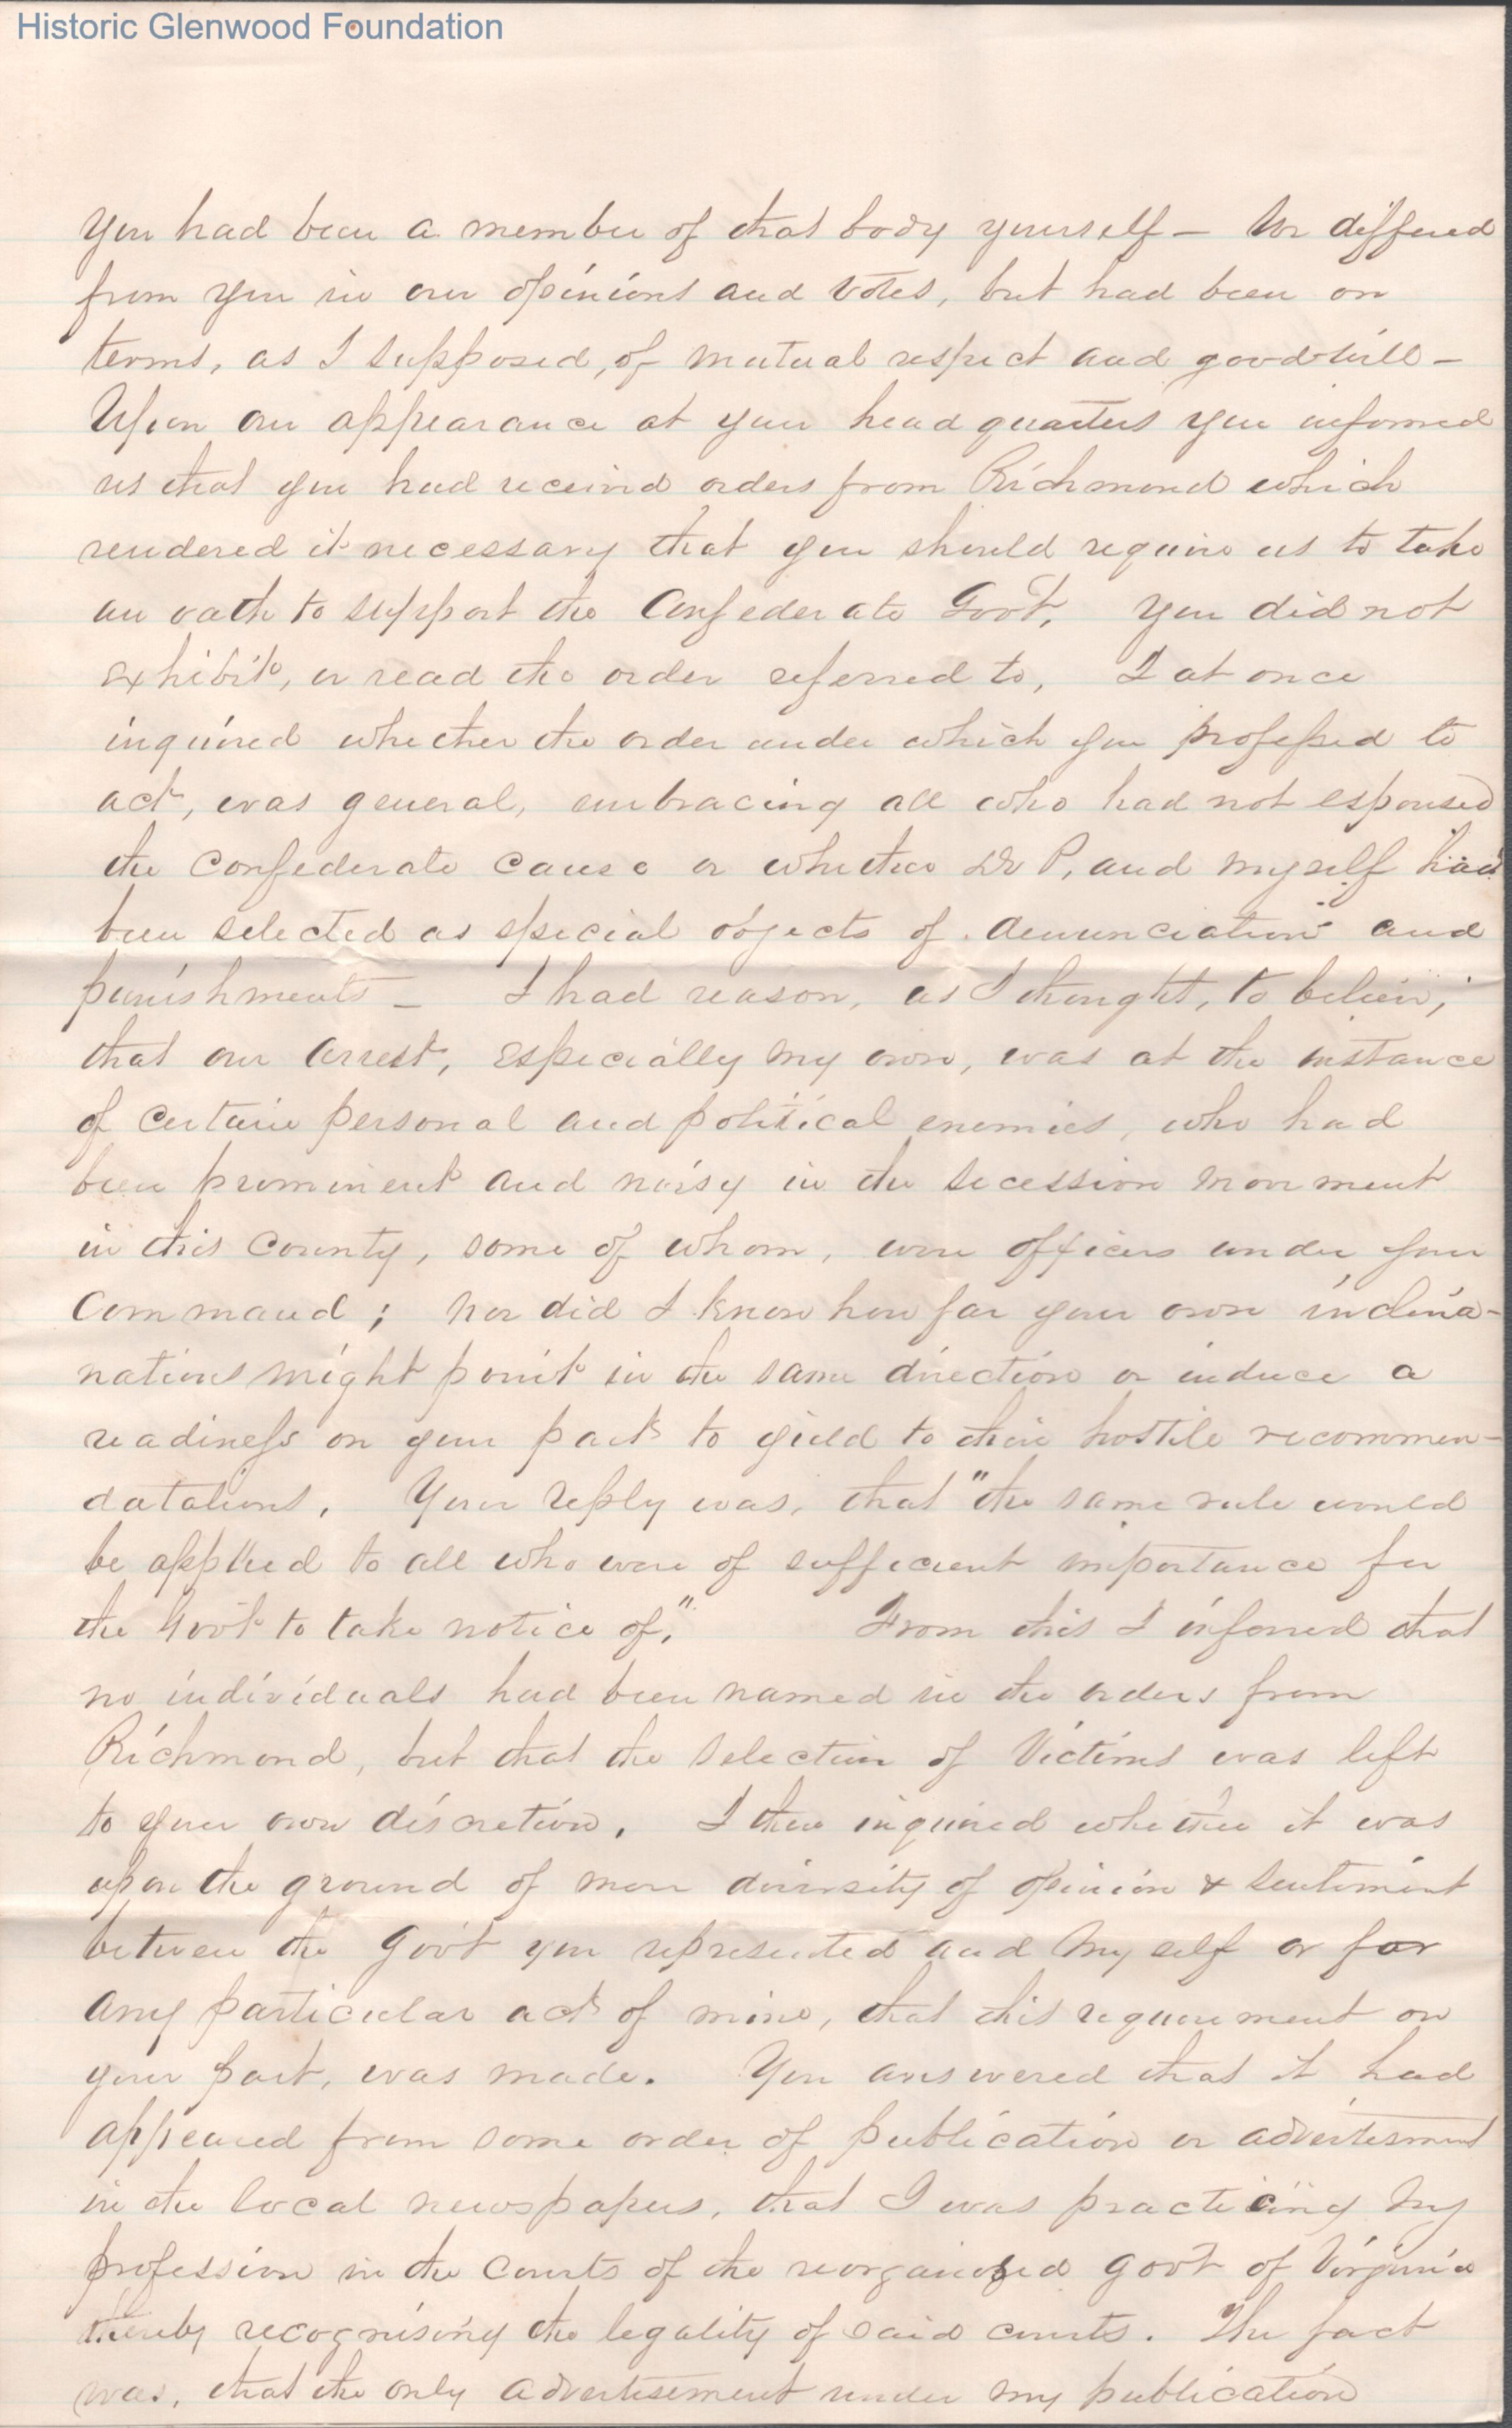 Historic Glenwood Foundation
you had been a member of that body yourself — We differed
from you in our opinions and votes, but had been on
terms, as I supposed, of mutual respect and goodwill —
Upon our appearance at your head quarters you informed
us that you had received orders from Richmond which
rendered it necessary that you should require us to take
an oath to support the Confederate Govt. You did not
exhibit, or read the order referred to, I at once
inquired whether the order under which you professed to
act, was general, embracing all who had not espoused
the Confederate cause or whether Dr P. and myself had
been selected as special objects of denunciation and
punishments — I had reason, as I thought, to believe,
that our arrest, especially my own, was at the instance
of certain personal and political enemies, who had
been prominent and noisy in the secession movement
in this County, some of whom, were officers under your
Command; nor did I know how far your own inclina-
nations might point in the same direction or induce a
readiness on your part to yield to their hostile recommen-
datations. Your reply was, that "the same rule would
be applied to all who were of sufficient importance for
the Govt to take notice of." From this I inferred that
no individuals had been named in the orders from
Richmond, but that the selection of victims was left
to your own discretion. I then inquired whether it was
upon the ground of mere diversity of opinion & sentiment
between the Gov't you represented and my self or for
any particular act of mine, that this requirement on
your part, was made. You answered that it had
appeared from some order of publication or advertisment
in the local newspapers, that I was practicing my
profession in the Courts of the reorganized govt of Virginia
thereby recognising the legality of said courts. The fact
was, that the only advertisement under my publication